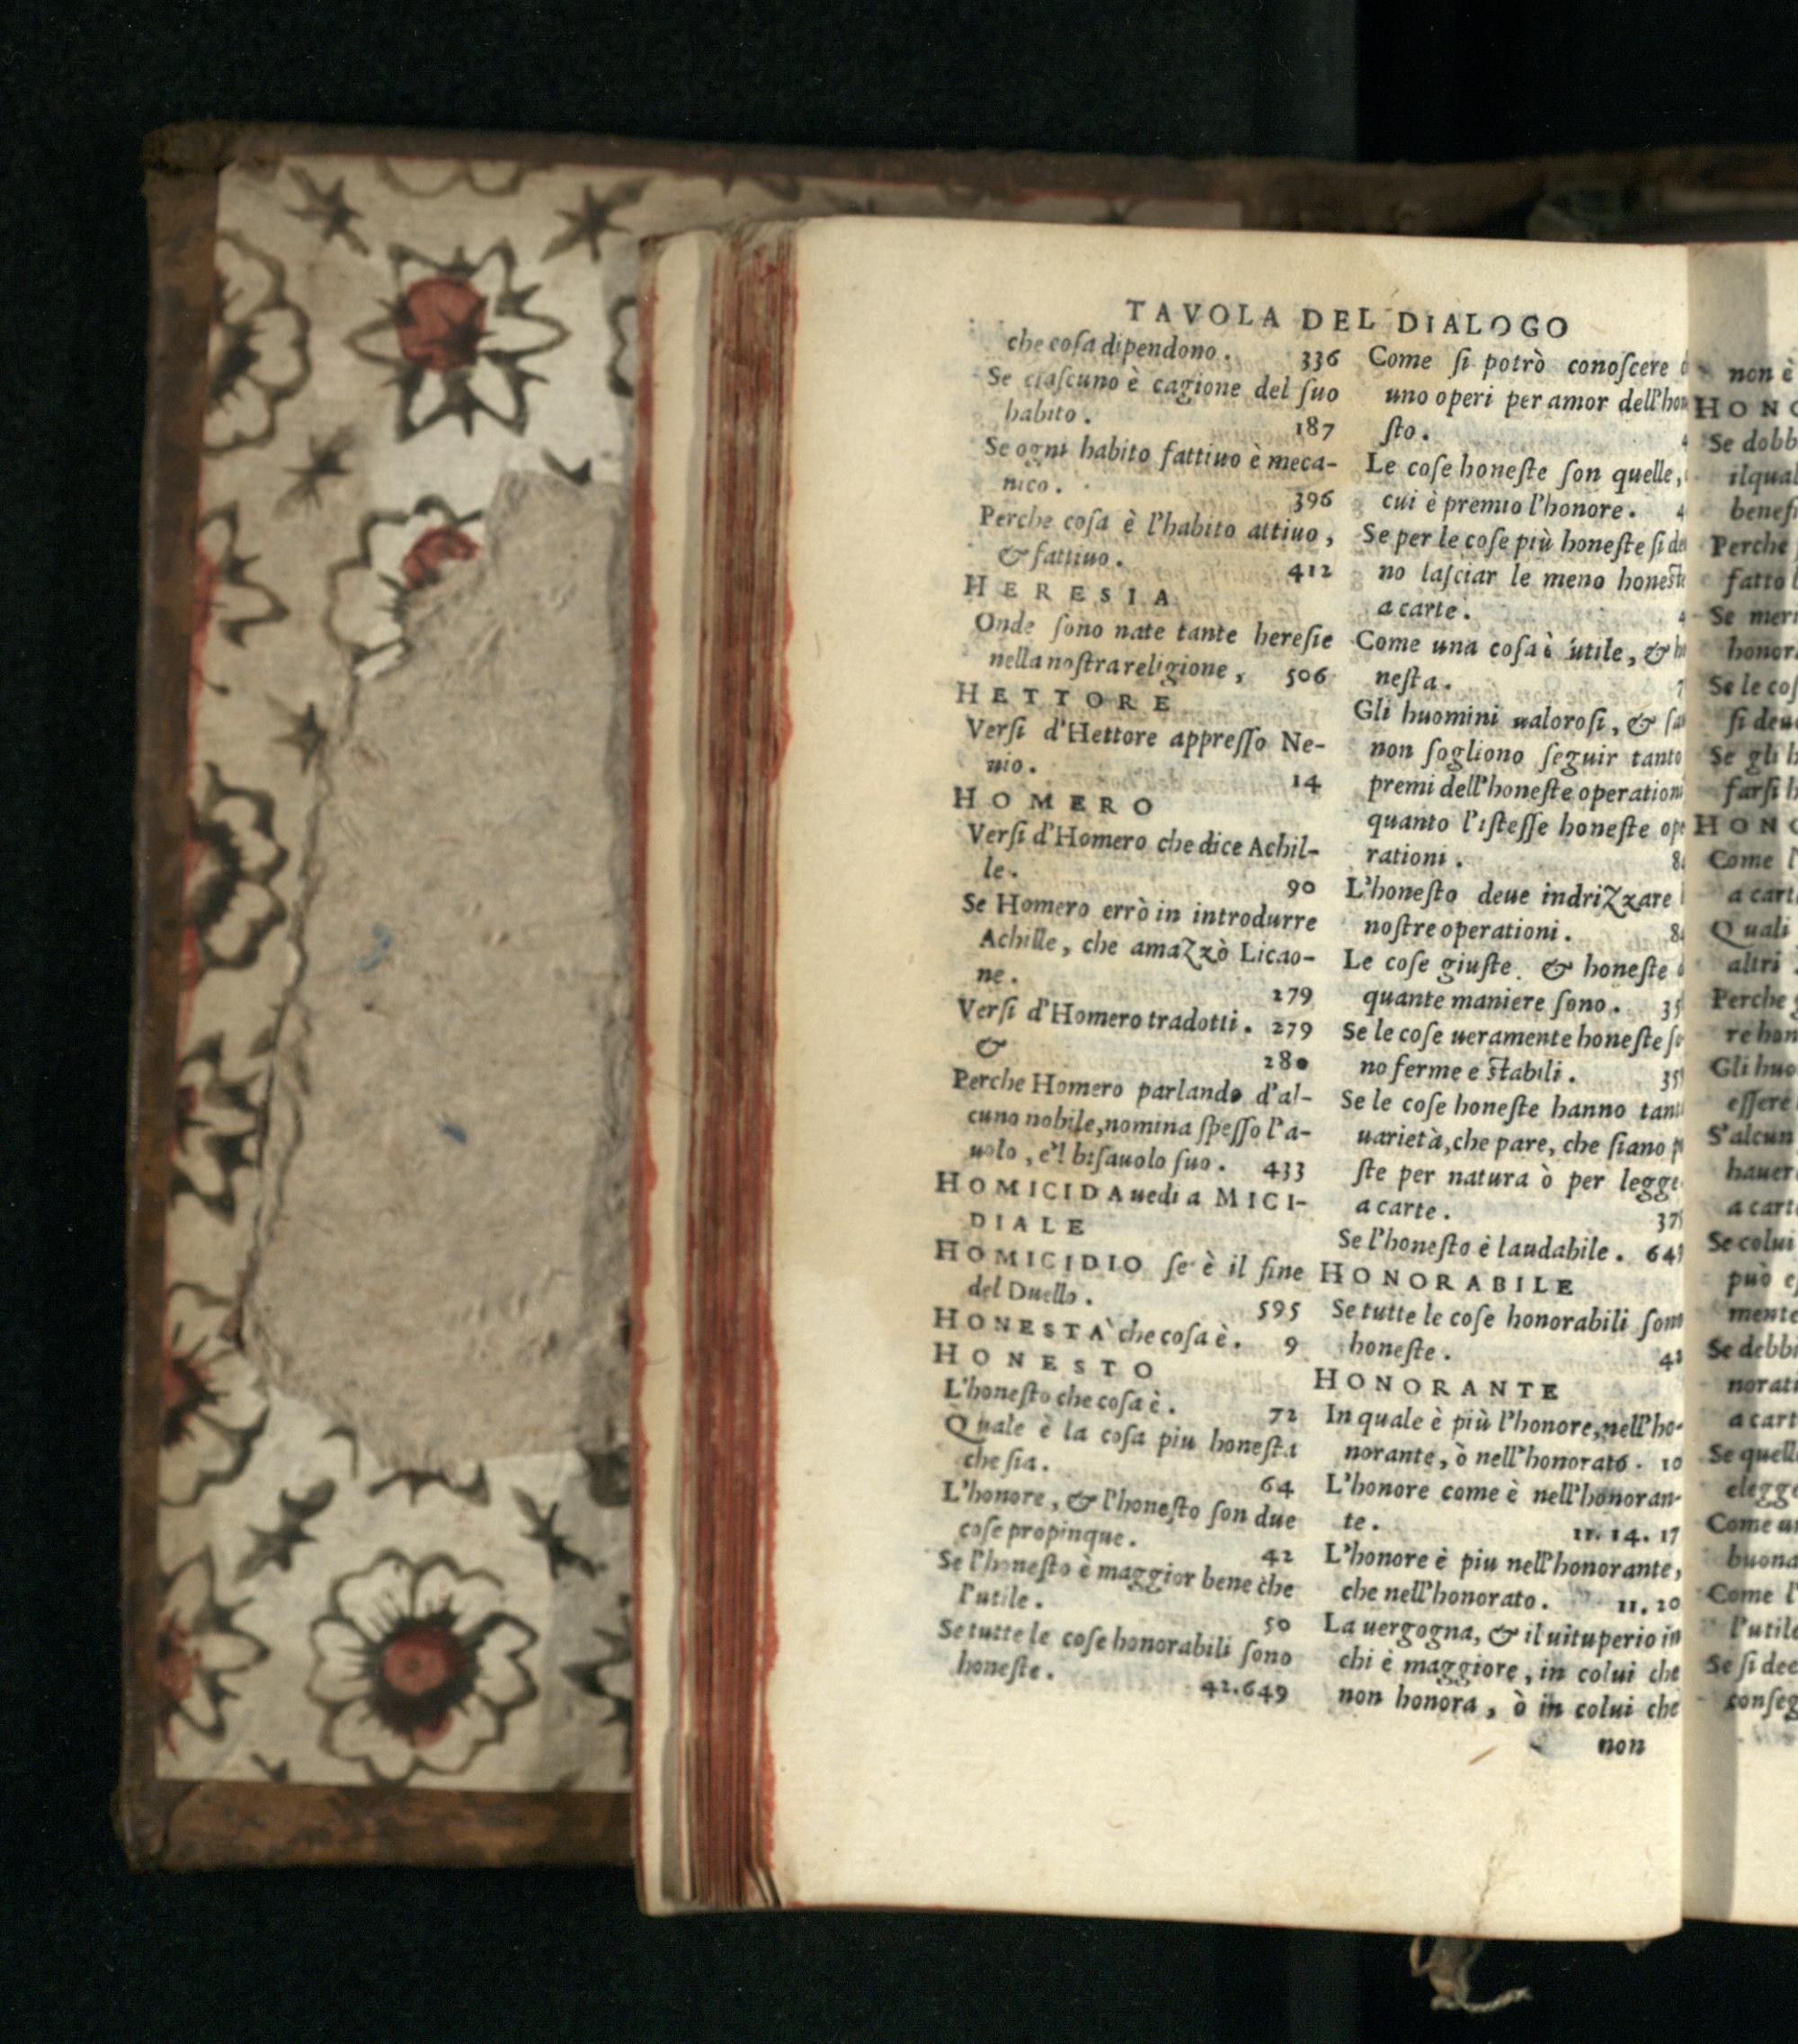 TAVOLA DEL DIALOGO
che coſa dipendono. 336
Se ciaſcuno è cagione del ſuo
habito. 187
Se ogni habito fattiuo è meca-
nico. 396
Perche coſa è l'habito attiuo,
& fattiuo. 412
HERESIA
Onde ſono nate tante hereſie
nella noſtra religione, 506
HETTORE
Verſi d'Hettore appreſſo Ne-
uio. 14
HOMERO
Verſi d'Homero che dice Achil-
le. 90
Se Homero errò in introdurre
Achille, che amazzò Licao-
ne. 279
Verſi d'Homero tradotti. 279
& 280
Perche Homero parlando d'al-
cuno nobile, nomina ſpeſſo l'a-
uolo, e'l biſauolo ſuo. 433
HOMICIDA uedi a MICI-
DIALE
HOMICIDIO ſe è il fine
del Duello. 595
HONESTA` che coſa è. 9
HONESTO
L'honeſto che coſa è. 72
Quale è la coſa piu honeſta
che ſia. 64
L'honore, & l'honeſto ſon due
coſe propinque. 42
Se l'honeſto è maggior bene che
l'utile. 50
Se tutte le coſe honorabili ſono
honeſte. 42.649
Come ſi potrò conoſcere
uno operi per amor dell'hon
ſto.
Le coſe honeſte ſon quelle,
cui è premio l'honore. 4
Se per le coſe più honeſte ſi de
no laſciar le meno honeſte
a carte. 4
Come una coſa è utile, & h
neſta. 7
Gli huomini ualoroſi, & ſa
non ſogliono ſeguir tanto
premi dell'honeſte operation
quanto l'iſteſſe honeſte ope
rationi. 8
L'honeſto deue indrizzare
noſtre operationi. 8
Le coſe giuſte. & honeſte
quante maniere ſono. 35
Se le coſe ueramente honeſte ſo
no ferme e ſtabili. 35
Se le coſe honeſte hanno tant
uarietà, che pare, che ſiano p
ſte per natura ò per legge
a carte. 37
Se l'honeſto è laudabile. 64
HONORABILE
Se tutte le coſe honorabili ſono
honeſte. 42
HONORANTE
In quale è più l'honore, nell'ho-
norante, ò nell'honorato. 10
L'honore come è nell'honoran-
te. 11. 14. 17
L'honore è piu nell'honorante,
che nell'honorato. 11. 20
La uergogna, & il uituperio in
chi è maggiore, in colui che
non honora, ò in colui che
non
non è
HONO
Se dobb
ilqual
benefi
Perche
fatto
Se meri
honor
Se le coſ
ſi deu
Se gli h
farſi h
HONO
Come l'
a cart
Quali
altri
Perche
re hon
Gli huo
eſſere
S'alcun
hauer
a cart
Se colui
può eſ
mente
Se debbi
norati
a cart
Se quell
elegge
Come un
buona
Come l'
l'utile
Se ſi dee
conſeg